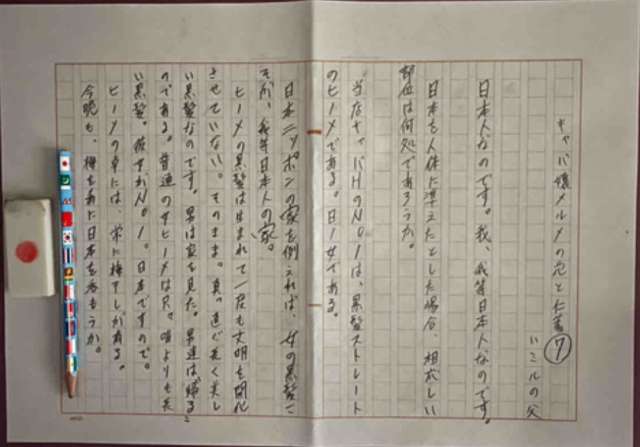 キャバ嬢メルメの恋と仁義⑦
ハミルの父
日本人なのです。我、我等日本人なのです。
日本を人体に準えたとした場合、相応しい
部位は何処であろうか。
当店キャバHのNo1は、黒髪ストレート
のヒーメである。日一女である。
日本ニッポンの家を例えれば、女の黒髪こ
そが、我等日本人の家。
ヒーメの黒髪は生まれて一度も文明を開化
させていない。そのまま。真っ直ぐ長く美し
い黒髪なのです。男は家を見た。男達は帰るこ
のである。普通のサヒーメは尺。唄よりも長
い黒髪。彼女がNo1。日本ですので。
ヒーメの卓には、常に梅干しがある。
今晩も、梅を肴に日本を呑もうか。